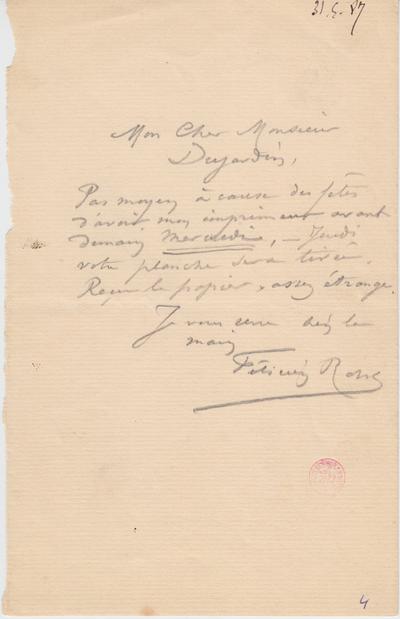 31.5.87
Mon Cher Monsieur
Dujardin,
Pas moyen à cause des fêtes
d'avoir mon imprimeur avant
demain mercredi, – Jeudi
votre planche sera tirée.
Reçu le papier, assez étrange.
Je vous serre bien la
main
Félicien Rops
4